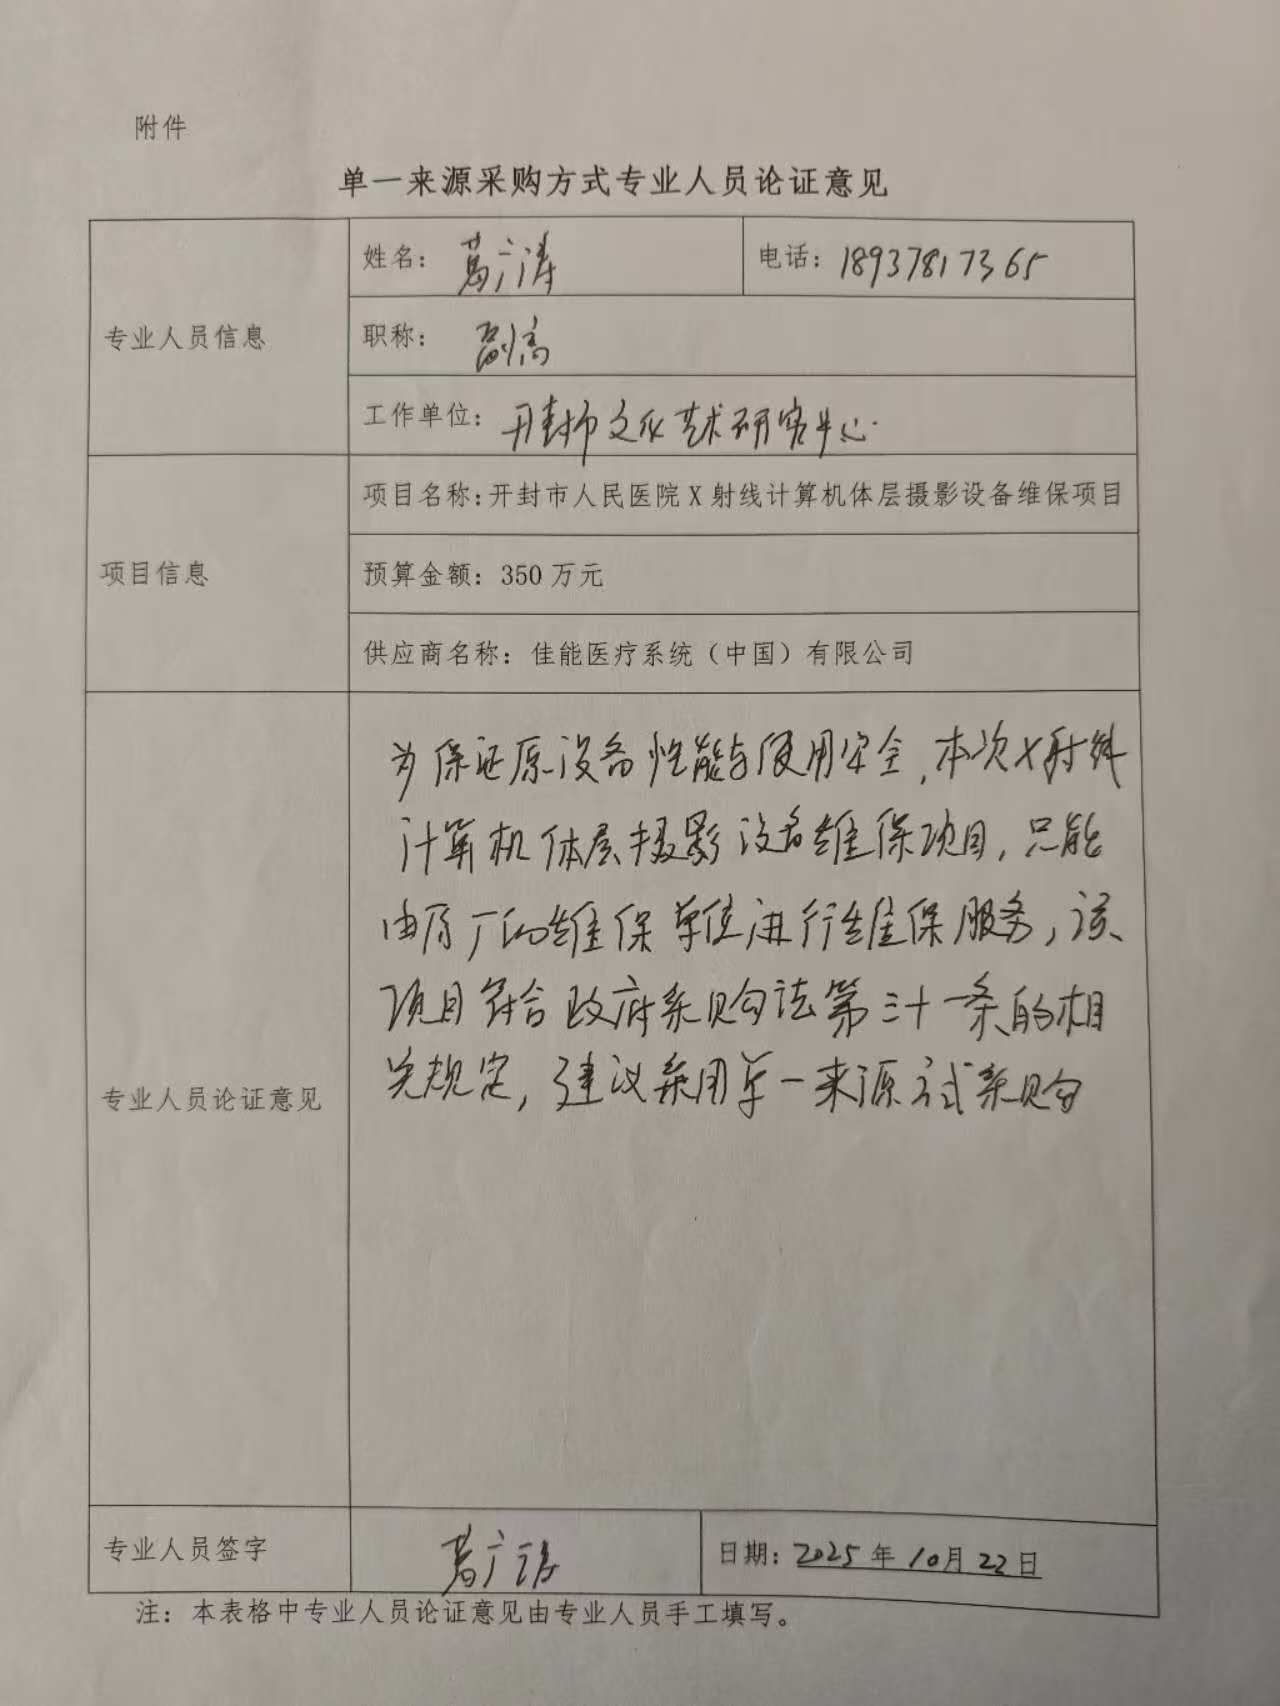 附件
单一来源采购方式专业人员论证意见
专业人员信息
姓名：葛广涛
电话：18937817365
职称：副高
工作单位：开封市文化艺术研究中心
项目信息
项目名称：开封市人民医院X射线计算机体层摄影设备维保项目
预算金额：350万元
供应商名称：佳能医疗系统（中国）有限公司
专业人员论证意见
为保证原设备性能与使用安全，本次X射线
计算机体层摄影设备维保项目，只能
由原厂的维保单位进行维保服务，该
项目符合政府采购法第三十一条的相
关规定，建议采用单一来源方式采购
专业人员签字
葛广涛
日期：2025年10月22日
注：本表格中专业人员论证意见由专业人员手工填写。